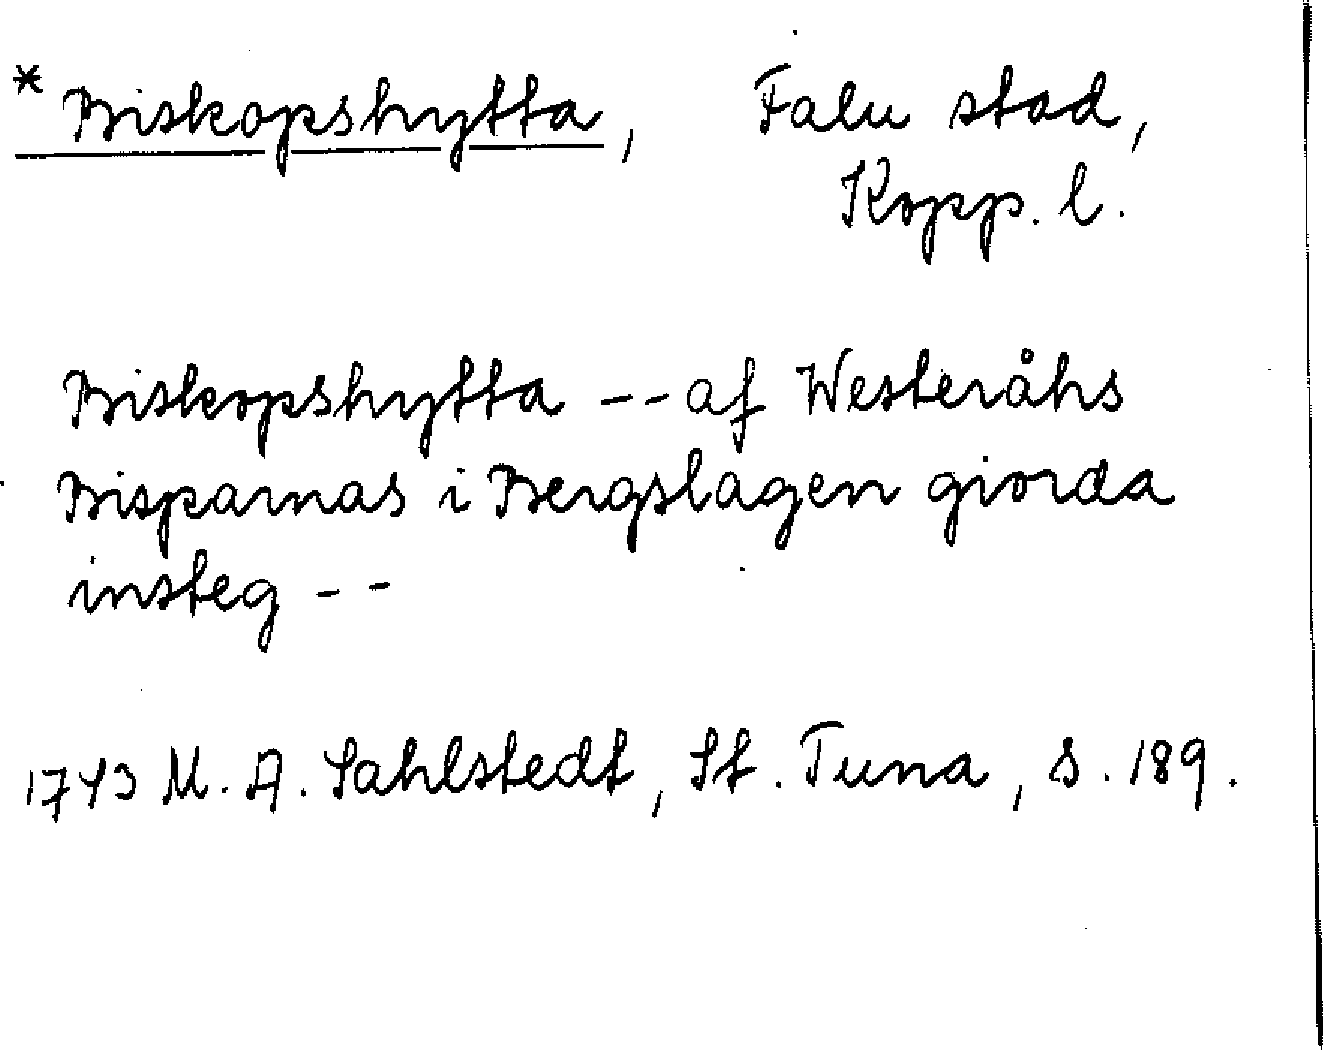 * Biskopshytta, Falu stad,
Kopp. l.
Biskopshytta -- af Westeråhs
Bisparnas i Bergslagen giorda
insteg --
1743 M. A. Sahlstedt, St. Tuna, s. 189.